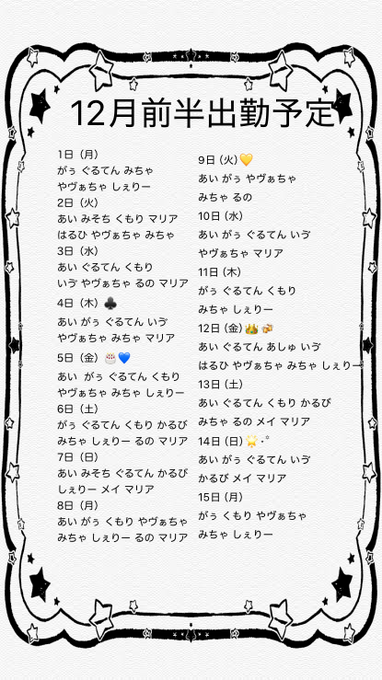 12月前半出勤予定
1日（月）
がぅ ぐるてん みちゃ
やヴぁちゃ しぇりー
2日（火）
あい みそち くもり マリア
はるひ やヴぁちゃ みちゃ
3日（水）
あい ぐるてん くもり
いず やヴぁちゃ るの マリア
4日（木）♣️
あい がぅ ぐるてん いず
やヴぁちゃ みちゃ マリア
5日（金）🎂💙
あい がぅ ぐるてん くもり
やヴぁちゃ みちゃ しぇりー
6日（土）
がぅ ぐるてん くもり かるび
みちゃ しぇりー るの マリア
7日（日）
あい みそち ぐるてん かるび
しぇりー メイ マリア
8日（月）
あい がぅ くもり やヴぁちゃ
みちゃ しぇりー るの マリア
9日（火）💛
あい がぅ やヴぁちゃ
みちゃ るの
10日（水）
あい がぅ ぐるてん いず
やヴぁちゃ マリア
11日（木）
がぅ ぐるてん くもり
みちゃ しぇりー
12日（金）
あい ぐるてん あしゅ いず
はるひ やヴぁちゃ みちゃ しぇりー
13日（土）
あい ぐるてん くもり かるび
みちゃ るの メイ マリア
14日（日）🌟･ﾟ
あい がぅ ぐるてん いず
かるび メイ マリア
15日（月）
がぅ くもり やヴぁちゃ
みちゃ しぇりー